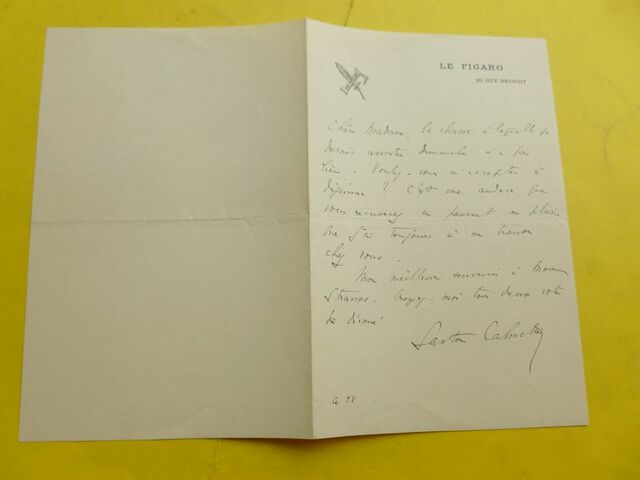 LE FIGARO
26, RUE DROUOT
Chère Madame, la chasse à laquelle je
devais assister dimanche n'a pas
lieu. Voulez-vous m'accepter à
déjeuner ? C'est une audace que
vous excuserez en pensant au plaisir
que j'ai toujours à me trouver
chez vous.
Mon meilleur souvenir à Monsieur
Straus. Croyez-moi tout de vous votre
dévoué
Gaston Calmette
Ce 28.